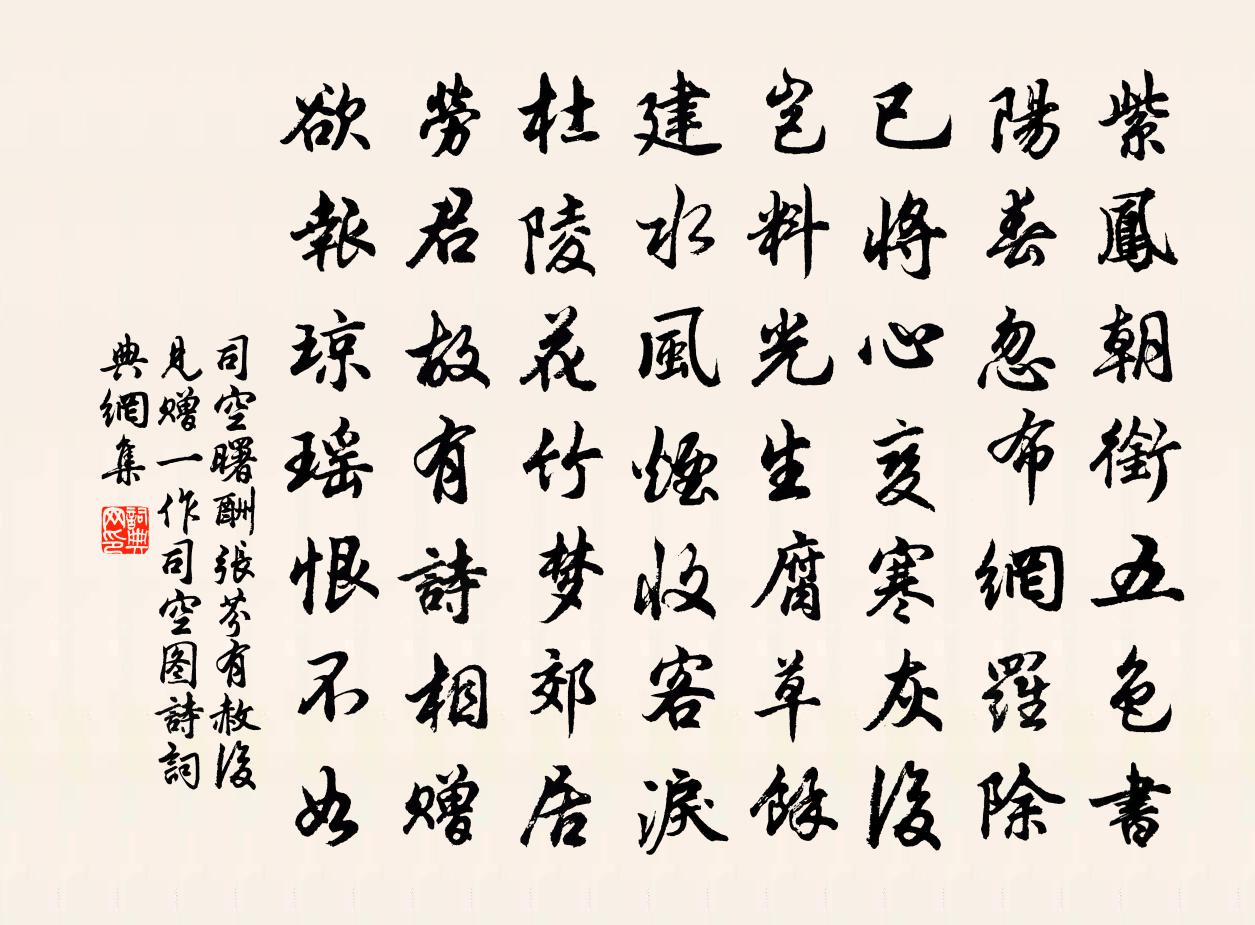 紫鳳朝銜五色書
陽春忽布網羅除
已將心變寒灰後
豈料光生腐草餘
建水風煙收客淚
杜陵花竹梦郊居
勞君故有詩相赠
欲報琼瑶恨不如
司空曙酬張芬有赦後
見赠一作司空图詩詞
典網集
詞典网印